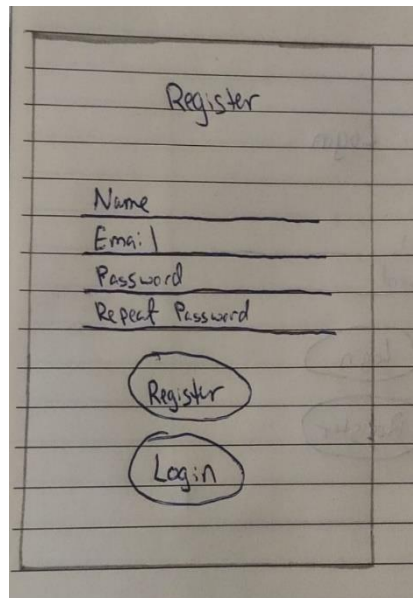 Register
Name
Email
Password
Repeat Password
Register
Login